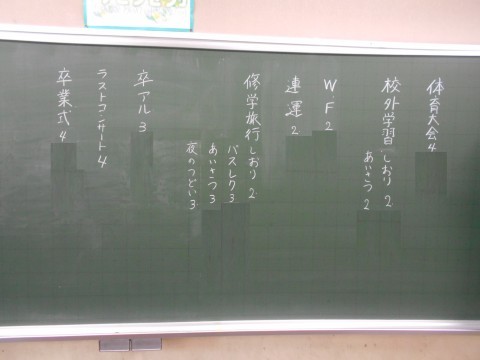 体育大会 4
校外学習 しおり 2
あいさつ 2
WF 2
連運 2
修学旅行 しおり 2
バスレク 3
あいさつ 3
夜のつどい 3
卒アル 3
ラストコンサート 4
卒業式 4